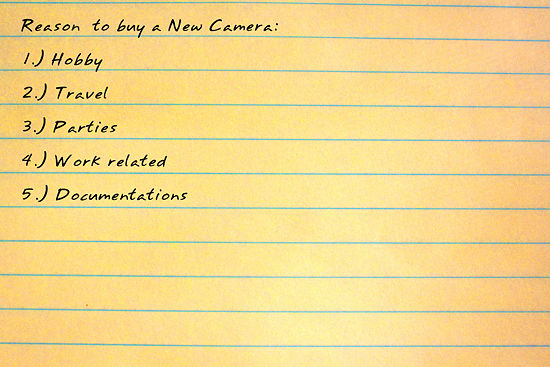 Reason to buy a New Camera:
1.) Hobby
2.) Travel
3.) Parties
4.) Work related
5.) Documentations